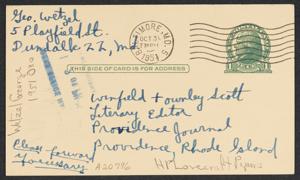 Geo. Wetzel
5 Playfield St.
Dundalk 22, Md.
BALTIMORE, MD.
OCT 31
1951
THIS SIDE OF CARD IS FOR ADDRESS
Wetzel George
1951 Oct
Winfield Townley Scott
Literary Editor
Providence Journal
Providence Rhode Island
Please forward
if necessary
A20776
H P Lovecraft Papers